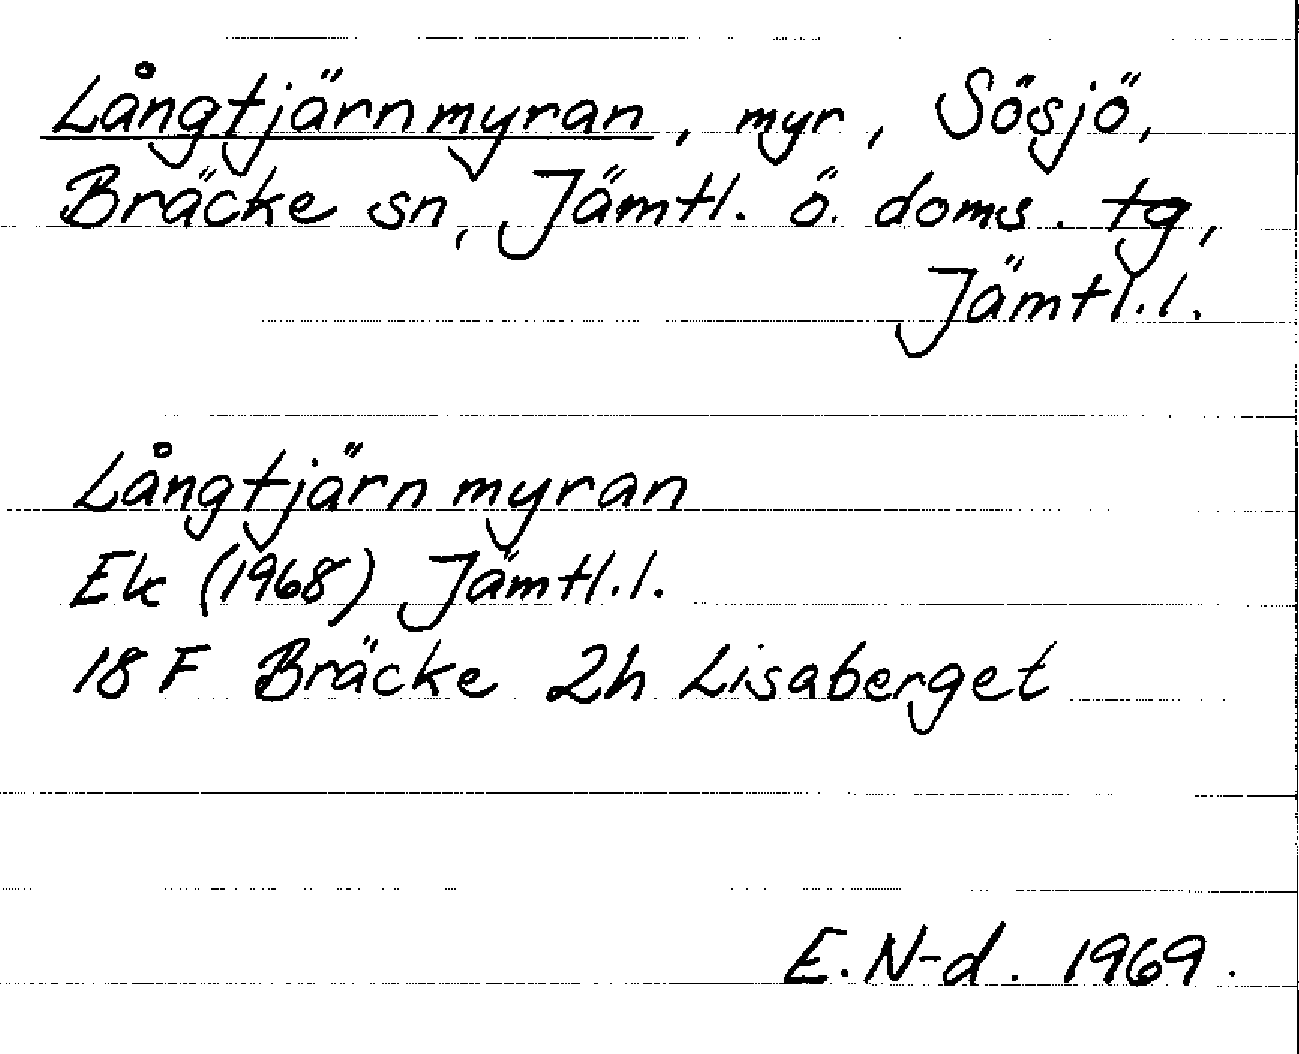 Långtjärnmyran, myr, Sösjö,
Bräcke sn, Jämtl. ö. doms. tg,
Jämtl.l.
Långtjärnmyran
Ek (1968) Jämtl.l.
18 F Bräcke 2h Lisaberget
E.N-d. 1969.